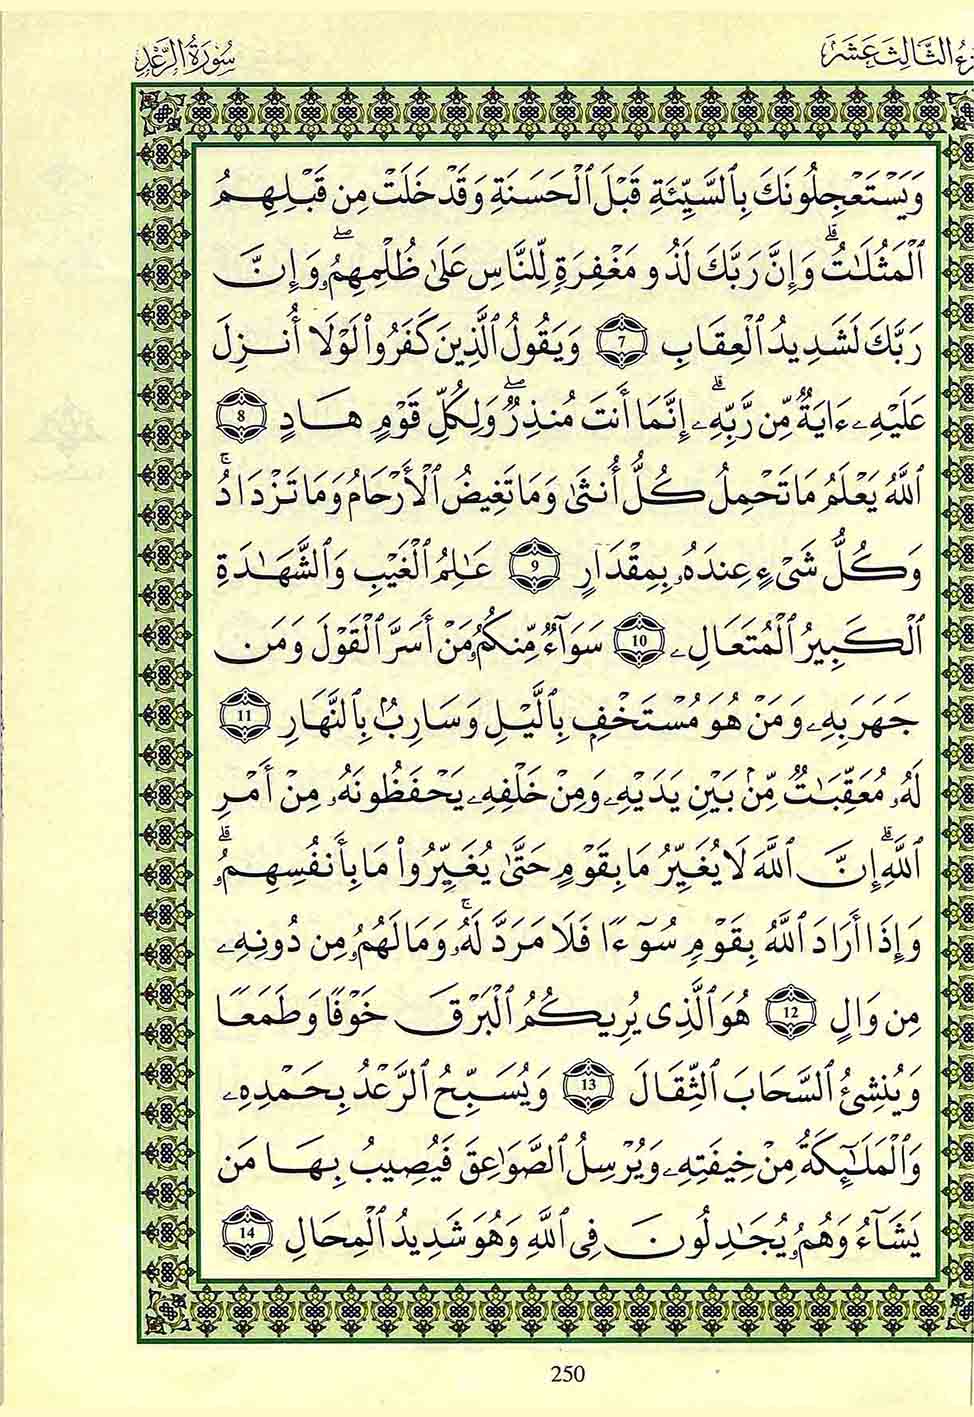 الجزء الثَّالِثَ عَشَرَ
سُورَةُ الرَّعْدِ
وَيَسْتَعْجِلُونَكَ بِالسَّيِّئَةِ قَبْلَ ٱلْحَسَنَةِ وَقَدْ خَلَتْ مِن قَبْلِهِمُ
ٱلْمَثُلَٰتُۗ وَإِنَّ رَبَّكَ لَذُو مَغْفِرَةٍ لِّلنَّاسِ عَلَىٰ ظُلْمِهِمُۥۖ وَإِنَّ
رَبَّكَ لَشَدِيدُ ٱلْعِقَابِ 7 وَيَقُولُ ٱلَّذِينَ كَفَرُواْ لَوْلَا أُنزِلَ
عَلَيْهِۦ ءَايَةٌ مِّن رَّبِّهِۦۗ إِنَّمَا أَنتَ مُنذِرٌۖ وَلِكُلِّ قَوْمٍ هَادٍ 8
ٱللَّهُ يَعْلَمُ مَا تَحْمِلُ كُلُّ أُنثَىٰ وَمَا تَغِيضُ ٱلْأَرْحَامُ وَمَا تَزْدَادُۚ
وَكُلُّ شَىْءٍ عِندَهُۥ بِمِقْدَارٍ 9 عَٰلِمُ ٱلْغَيْبِ وَٱلشَّهَٰدَةِ
ٱلْكَبِيرُ ٱلْمُتَعَالِۦ 10 سَوَآءٌ مِّنكُمُۥ مَنْ أَسَرَّ ٱلْقَوْلَ وَمَن
جَهَرَ بِهِۦ وَمَنْ هُوَ مُسْتَخْفٍۭ بِٱلَّيْلِ وَسَارِبٌۢ بِٱلنَّهَارِ 11
لَهُۥ مُعَقِّبَٰتٌ مِّنۢ بَيْنِ يَدَيْهِۦ وَمِنْ خَلْفِهِۦ يَحْفَظُونَهُۥ مِنْ أَمْرِ
ٱللَّهِۗ إِنَّ ٱللَّهَ لَا يُغَيِّرُ مَا بِقَوْمٍ حَتَّىٰ يُغَيِّرُواْ مَا بِأَنفُسِهِمُۥۗ
وَإِذَا أَرَادَ ٱللَّهُ بِقَوْمٍ سُوٓءًا فَلَا مَرَدَّ لَهُۥۚ وَمَا لَهُمُۥ مِن دُونِهِۦ
مِن وَالٍ 12 هُوَ ٱلَّذِى يُرِيكُمُ ٱلْبَرْقَ خَوْفًا وَطَمَعًا
وَيُنشِئُ ٱلسَّحَابَ ٱلثِّقَالَ 13 وَيُسَبِّحُ ٱلرَّعْدُ بِحَمْدِهِۦ
وَٱلْمَلَٰٓئِكَةُ مِنْ خِيفَتِهِۦ وَيُرْسِلُ ٱلصَّوَٰعِقَ فَيُصِيبُ بِهَا مَن
يَشَآءُ وَهُمُۥ يُجَٰدِلُونَ فِى ٱللَّهِ وَهُوَ شَدِيدُ ٱلْمِحَالِ 14
250